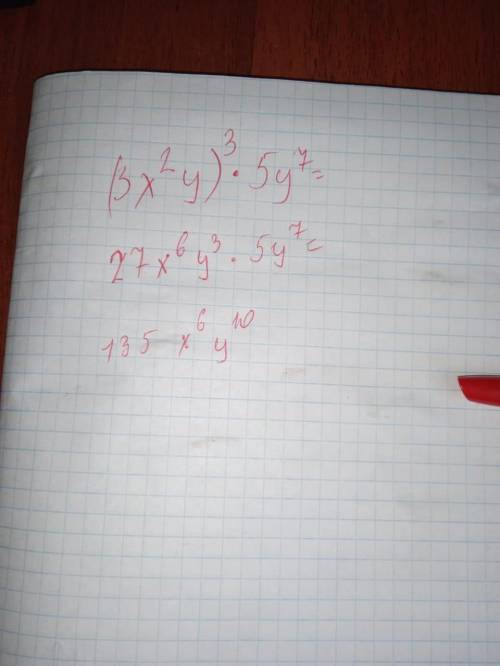 (3x²y)³ · 5y⁷ =
27x⁶y³ · 5y⁷ =
135 x⁶y¹⁰